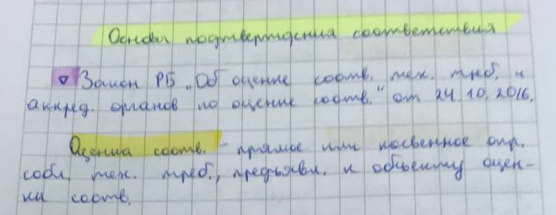 Основы подтверждения соответствия
▽ Закон РБ „Об оценке соотв. тех. треб. и
аккред. органов по оценке соотв." от 24.10.2016.
Оценка соотв. - прямое или косвенное опр.
собл. тех. треб., предъявл. к объекту оцен-
ки соотв.